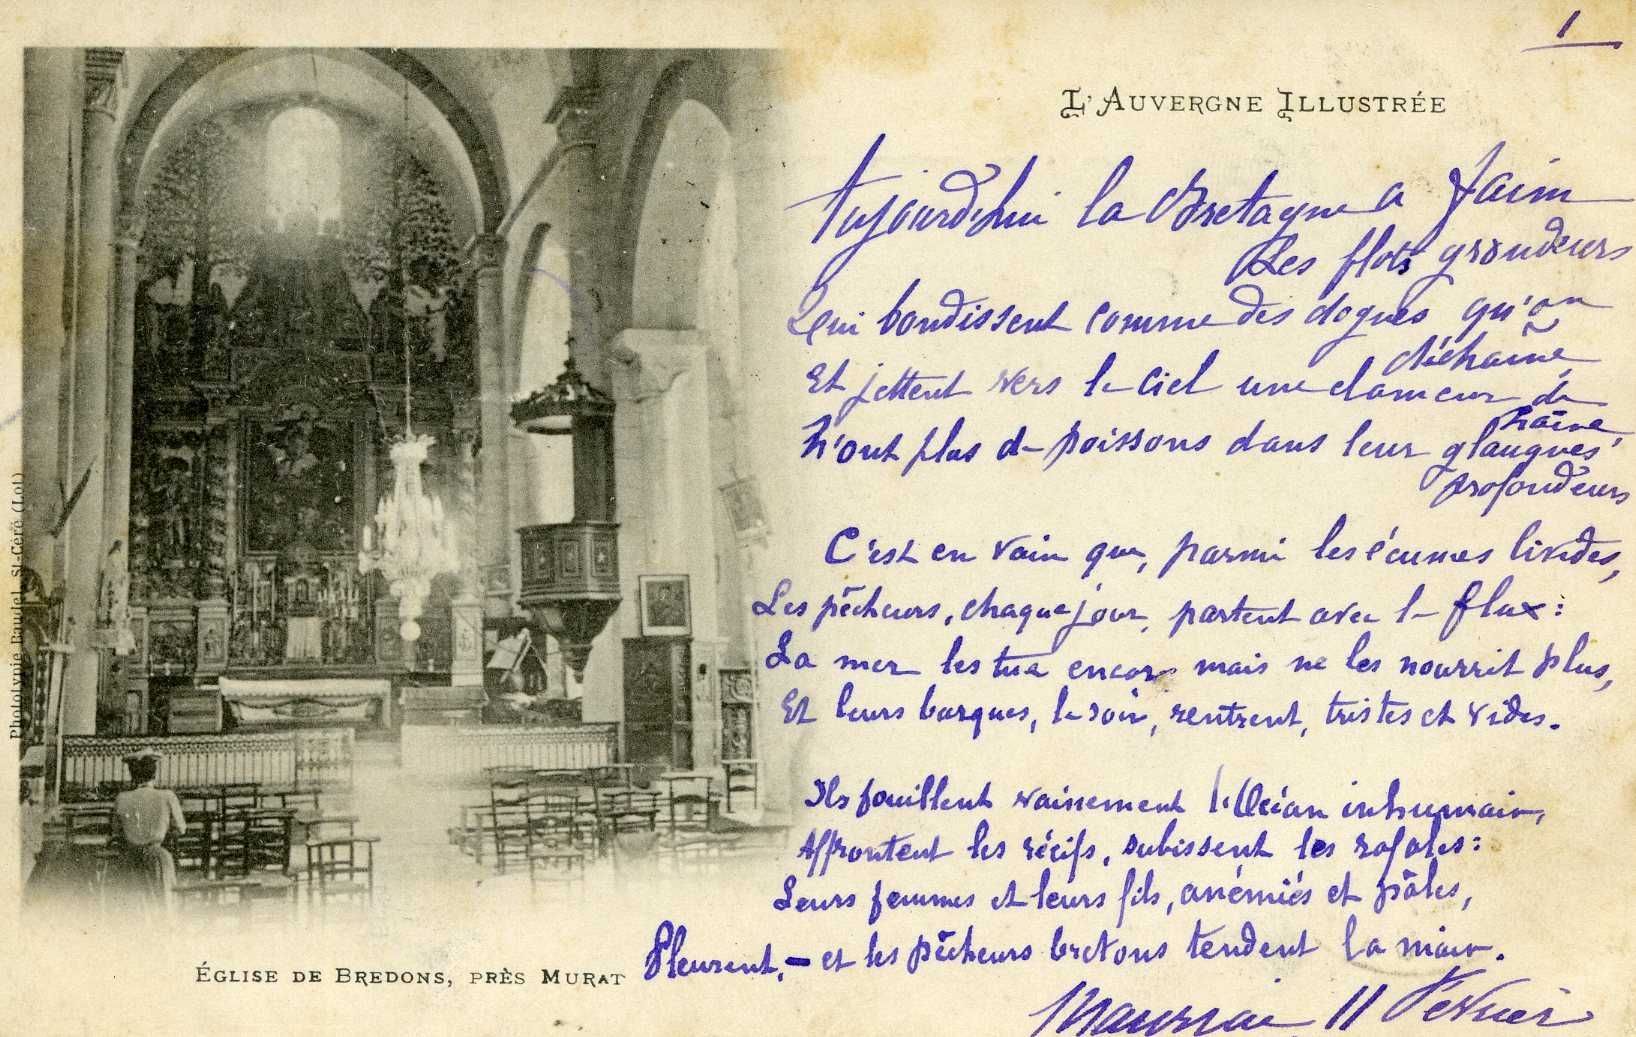 1
L'AUVERGNE ILLUSTRÉE
Aujourd'hui la Bretagne a faim
Les flots grondeurs
Qui bondissent comme des dogues qu'on
déchaîne
Et jettent vers le ciel une clameur de
haine,
N'ont plus de poissons dans leur glauques
profondeurs
C'est en vain que, parmi les écumes livides,
Les pêcheurs, chaque jour, partent avec le flux :
La mer les tue encor mais ne les nourrit plus,
Et leurs barques, le soir, rentrent, tristes et vides.
Ils fouillent vainement l'Océan inhumain,
Affrontent les récifs, subissent les rafales :
Leurs femmes et leurs fils, anémiés et pâles,
Pleurent, – et les pêcheurs bretons tendent la main.
Mauriac 11 Février
ÉGLISE DE BREDONS, PRÈS MURAT
Phototypie Baudel St-Céré (Lot)